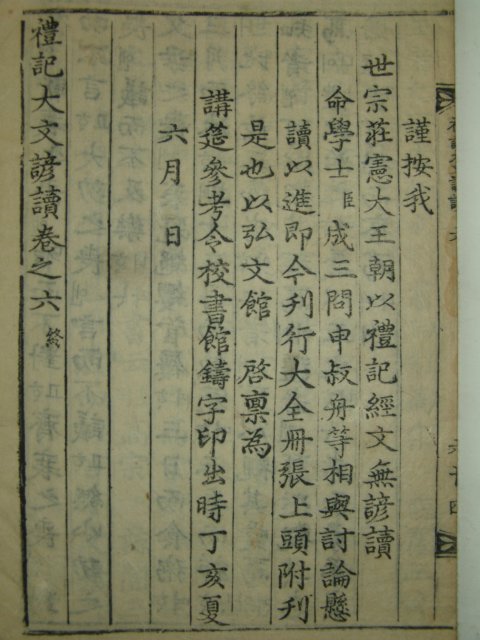 謹按我
世宗莊憲大王朝以禮記經文無諺讀
命學士臣成三問申叔舟等相與討論懸
讀以進即今刊行大全冊張上頭附刊
是也以弘文館 啓稟為
講筵參考令校書館鑄字印出時丁亥夏
六月 日
禮記大文諺讀卷之六 終